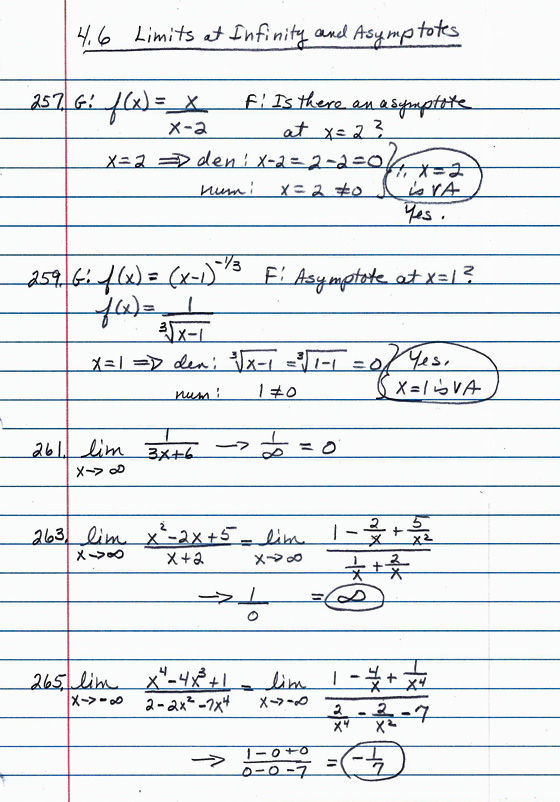 4.6 Limits at Infinity and Asymptotes
257. G: f(x) = x/(x-2) F: Is there an asymptote
at x = 2?
x = 2 ⟹ den: x-2 = 2-2 = 0 } ∴ x = 2
num: x = 2 ≠ 0 is VA
Yes.
259. G: f(x) = (x-1)^(-1/3) F: Asymptote at x=1?
f(x) = 1/∛(x-1)
x=1 ⟹ den: ∛(x-1) = ∛(1-1) = 0 } Yes.
num: 1 ≠ 0 x=1 is VA
261. lim x→∞ 1/(3x+6) → 1/∞ = 0
263. lim x→∞ (x²-2x+5)/(x+2) = lim x→∞ (1 - 2/x + 5/x²)/(1/x + 2/x)
→ 1/0 = ∞
265. lim x→-∞ (x⁴-4x³+1)/(2-2x²-7x⁴) = lim x→-∞ (1 - 4/x + 1/x⁴)/(2/x⁴ - 2/x² - 7)
→ (1-0+0)/(0-0-7) = -1/7